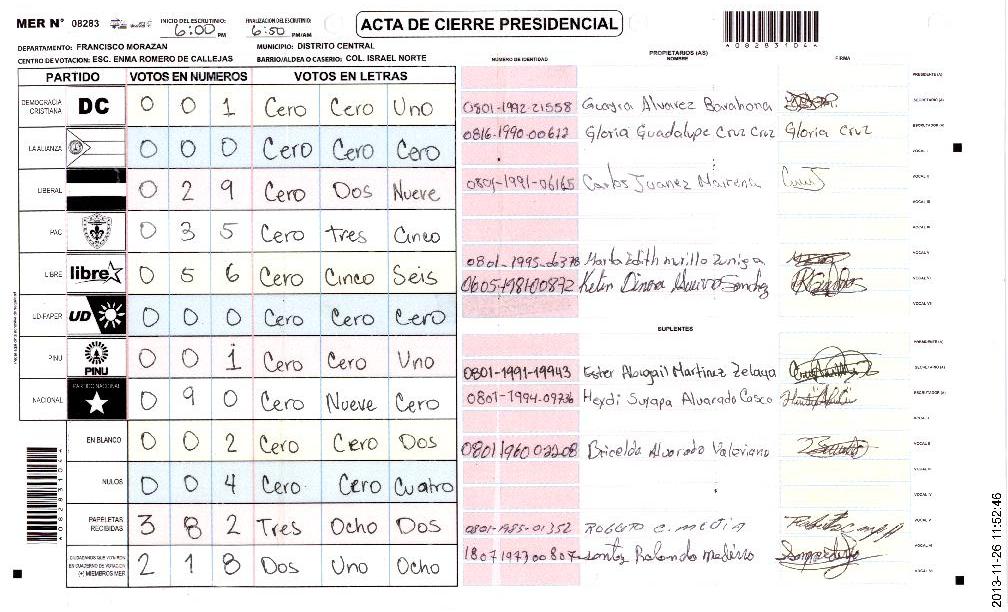 MER N° 08283 INICIO DEL ESCRUTINIO: 6:00 PM FINALIZACION DEL ESCRUTINIO: 6:50 PM/AM ACTA DE CIERRE PRESIDENCIAL
DEPARTAMENTO: FRANCISCO MORAZAN MUNICIPIO: DISTRITO CENTRAL
CENTRO DE VOTACION: ESC. ENMA ROMERO DE CALLEJAS BARRIO/ALDEA O CASERIO: COL. ISRAEL NORTE
PARTIDO VOTOS EN NUMEROS VOTOS EN LETRAS
DEMOCRACIA CRISTIANA DC 0 0 1 Cero Cero Uno
LA ALIANZA 0 0 0 Cero Cero Cero
LIBERAL 0 2 9 Cero Dos Nueve
PAC 0 3 5 Cero tres Cinco
LIBRE libre 0 5 6 Cero Cinco Seis
UD-FAPER UD 0 0 0 Cero Cero Cero
PINU PINU 0 0 1 Cero Cero Uno
NACIONAL PARTIDO NACIONAL 0 9 0 Cero Nueve Cero
EN BLANCO 0 0 2 Cero Cero Dos
NULOS 0 0 4 Cero Cero Cuatro
PAPELETAS RECIBIDAS 3 8 2 Tres Ocho Dos
CIUDADANOS QUE VOTARON EN CUADERNO DE VOTACION (+) MIEMBROS MER 2 1 8 Dos Uno Ocho
A08283104A
PROPIETARIOS (AS)
NÚMERO DE IDENTIDAD NOMBRE FIRMA
PRESIDENTE (A)
0801-1992-21558 Alvarez Barahona SECRETARIO (A)
0816-1990-00612 Gloria Guadalupe Cruz Cruz Gloria Cruz ESCRUTADOR (A)
VOCAL I
0801-1991-06165 Carlos Juanez Mairena VOCAL II
VOCAL III
VOCAL IV
0801-1995- Marta Edith murillo Zuniga VOCAL V
Kelin Dinora Sanchez VOCAL VI
VOCAL VII
SUPLENTES
PRESIDENTE (A)
0801-1991-19943 Ester Abigail Martinez Zelaya SECRETARIO (A)
0801-1994-09736 Heydi Suyapa Alvarado Casco ESCRUTADOR (A)
VOCAL I
0801 1960 02208 Bricelda Alvarado Valeriano VOCAL II
VOCAL III
VOCAL IV
0801-1985-01352 Roberto C. Medin VOCAL V
1807 1977 00807 Rolando VOCAL VI
VOCAL VII
A08283104A
2013-11-26 11:52:46